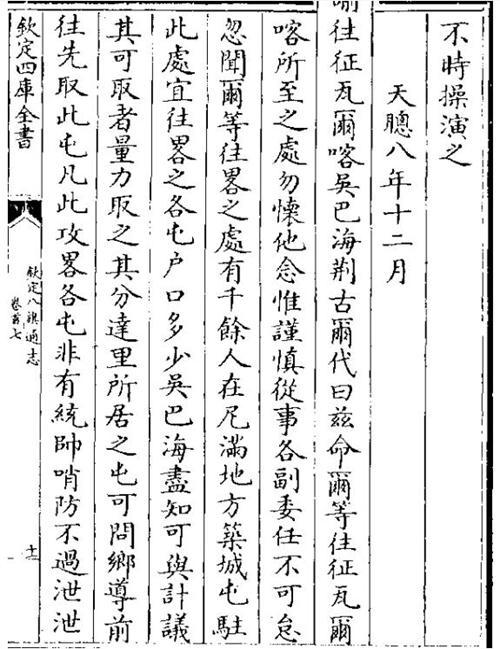 不時操演之
天聰八年十二月
諭往征瓦爾喀吳巴海荆古爾代曰兹命爾等往征瓦爾
喀所至之處勿懷他念惟謹慎從事各副委任不可怠
忽聞爾等往畧之處有千餘人在尼滿地方築城屯駐
此處宜往畧之各屯户口多少吳巴海盡知可與計議
其可取者量力取之其分達里所居之屯可問鄉導前
往先取此屯凡此攻畧各屯非有統帥哨防不過泄泄
欽定四庫全書
欽定八旗通志
卷首七
十一